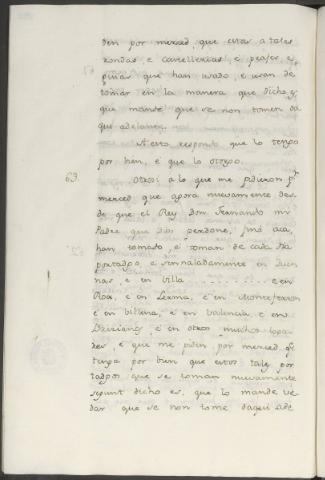 den por merced, que estas atales
rondas, e castellerias, e peajes, e
que han usado, e usan de
tomar en la manera que dicho es
que mande que se non tomen da
qui adelante.
A esto respondo que lo tengo
por bien, e que lo otorgo.
63. Otrosi a lo que me pidieron por
merced que agora nuevamente des
de que el Rey Don Fernando mi
Padre que Dios perdone, finó acá,
han tomado, e toman de cada dia
portadgo, e sennaladamente en Duen
nas, e en Villa . . . . . . . . . . e en
Roa, e en Lerma, e en
e en Villena, e en Valencia, e en
e en otros muchos loga
res, e que me piden por merced, que
tenga por bien que estos tales por
tadgos que se toman nuevamente
segunt dicho es, que lo mande ve
dar que se non tome daqui ade